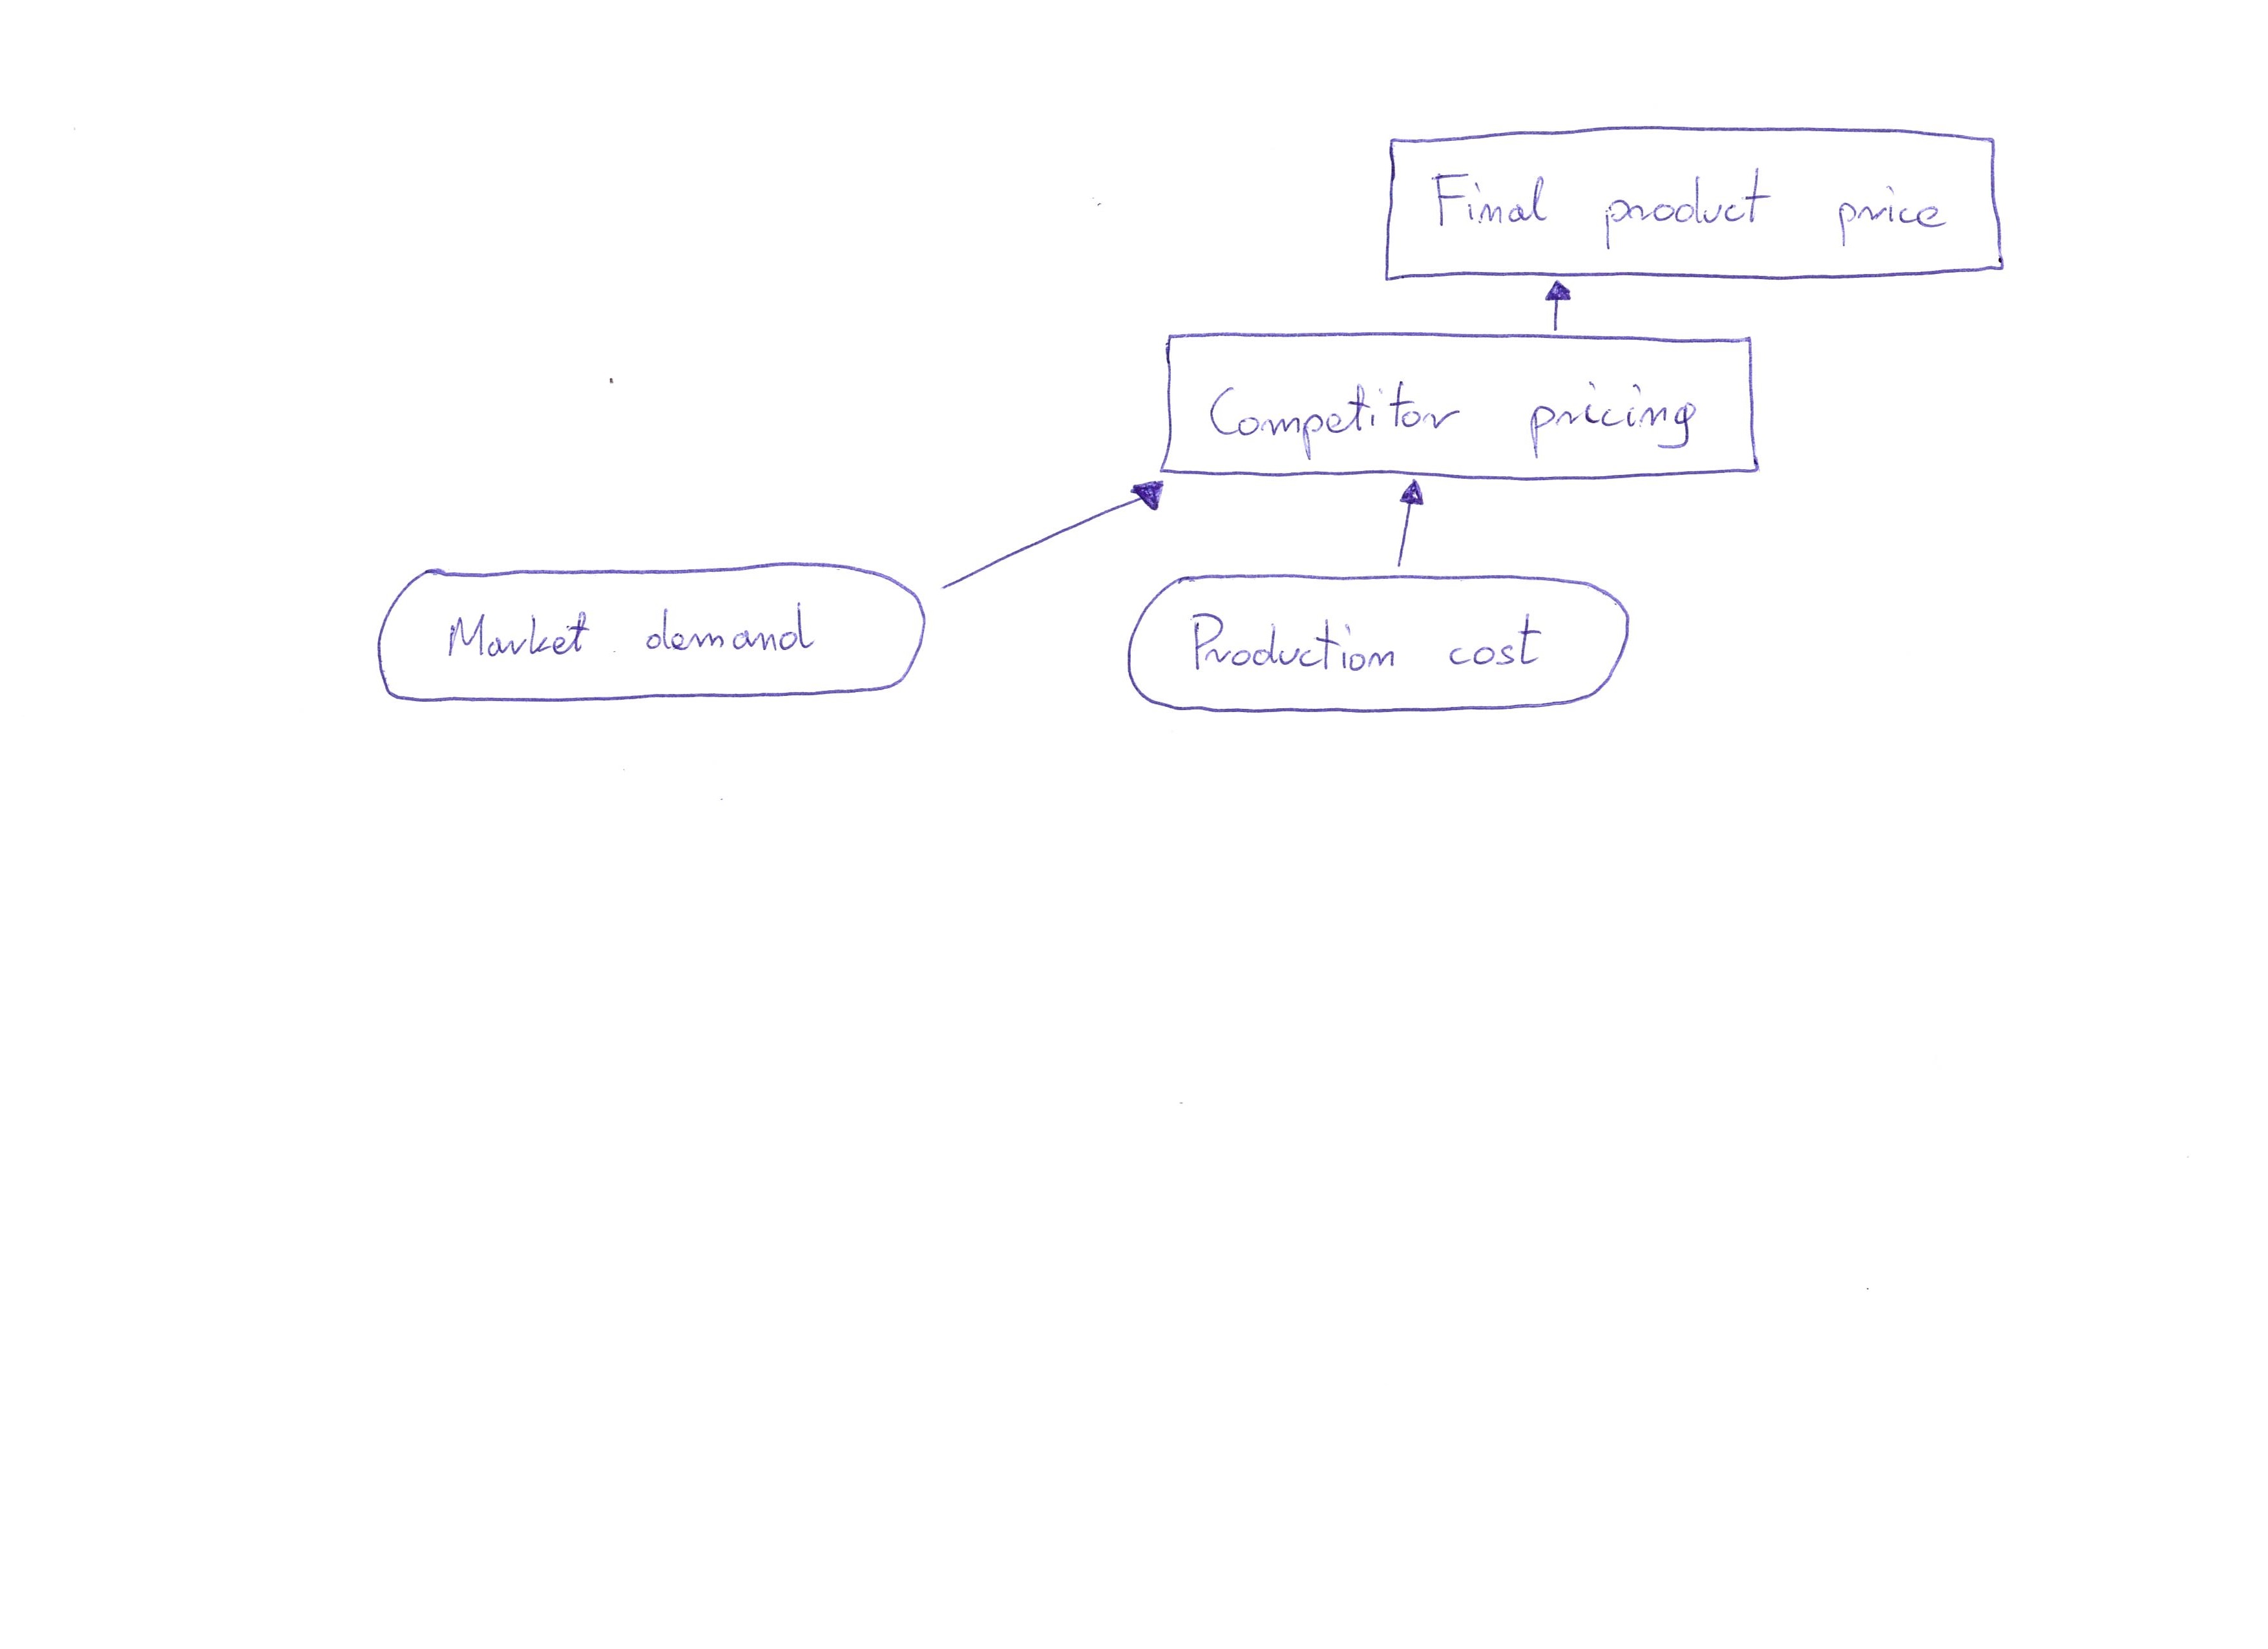 Final product price
Competitor pricing
Market demand
Production cost